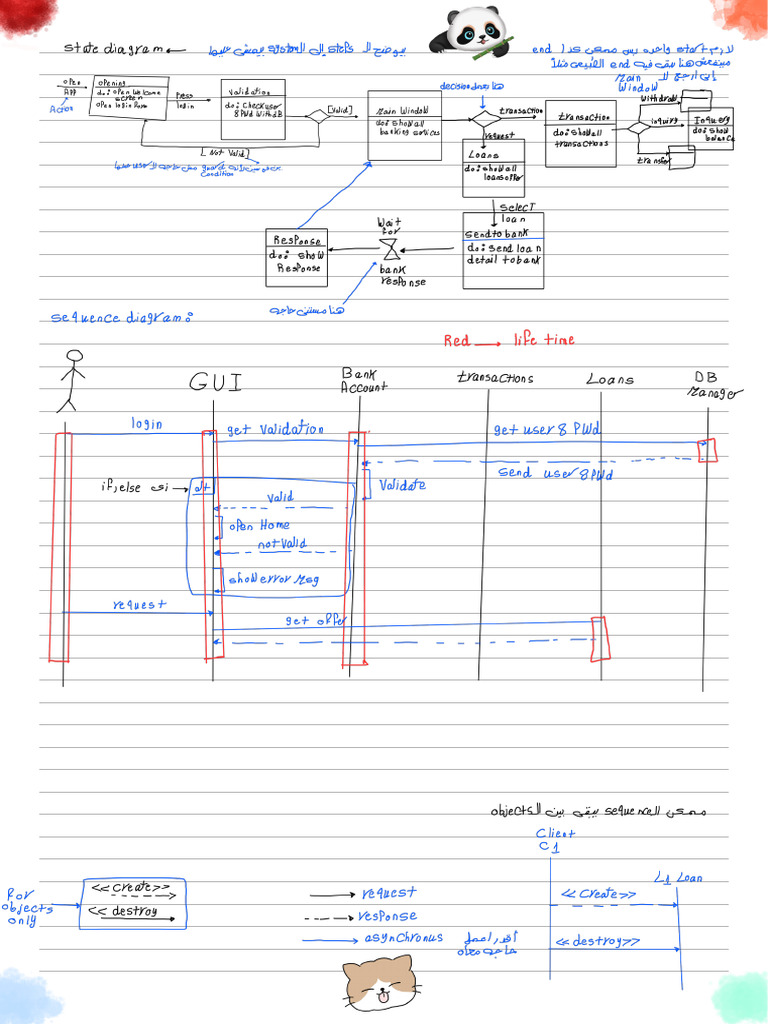 state diagram ← يوضح الـ steps الي الـ system بيمشي عليها
لازم start واحده بس ممكن كذا end
مينفعش هنا يبقى فيه end
ارجع لـ Main
Window
open
App
Action
opening
do: open welcome
screen
open login Page
Press
login
validation
do: check user
& PWd with dB
[valid]
[Not Valid]
Condition
Main Window
do: show all
banking services
decision
transaction
request
Loans
do: show all
loans offer
transaction
do: show all
transactions
withdraw
inquiry
transfer
Inquery
do: show
balance
select
loan
send to bank
do: send loan
detail to bank
Wait
for
bank
response
Response
do: show
Response
هنا مستني حاجه
sequence diagram:
Red → life time
GUI
Bank
Account
transactions
Loans
DB
Manager
login
get validation
get user & PWd
send user & PWd
validate
if, else
alt
valid
open Home
not valid
show error Msg
request
get offer
ممكن الـ sequence يبقى بين الـ objects
Client
C1
L1 Loan
<<create>>
<<destroy>>
For
objects
only
<<create>>
<<destroy>>
request
response
asynchronus
أقدر اعمل
حاجه معاه